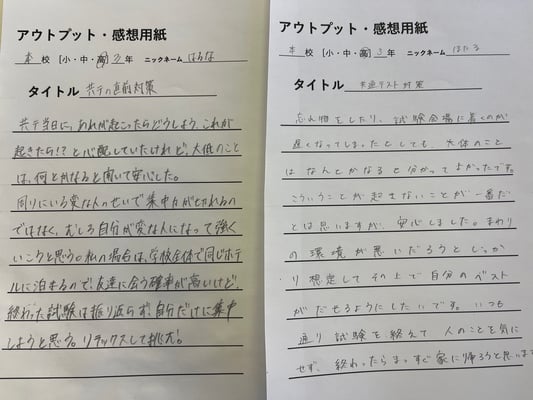 アウトプット・感想用紙
本 校 [小・中・高] 3 年 ニックネーム はるな
タイトル 共テの直前対策
共テ当日に、あれが起こったらどうしよう、これが
起きたら!?と心配していたけれど、大抵のこと
は、何とかなると聞いて安心した。
周りにいる変な人のせいで集中力がきれるの
ではなく、むしろ自分が変な人になって強く
いこうと思う。私の場合は、学校全体で同じホテ
ルに泊まるので、友達に会う確率が高いけど、
終わった試験は振り返らず、自分だけに集中
しようと思う。リラックスして挑む!
アウトプット・感想用紙
本 校 [小・中・高] 3 年 ニックネーム はたる
タイトル 共通テスト対策
忘れ物をしたり、試験会場に着くのが
遅くなってしまったとしても、大体のこと
はなんとかなると分かってよかったです。
こういうことが起きないことが一番だ
とは思いますが、安心しました。まわり
の環境が悪いだろうとしっか
り想定してその上で自分のベスト
がだせるようにしたいです。いつも
通り試験を終えて人のことを気に
せず、終わったらまっすぐ家に帰ろうと思います